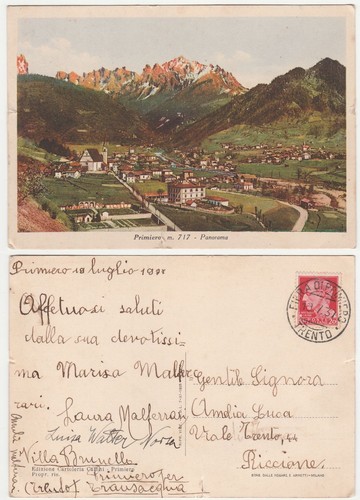 Primiero m. 717 - Panorama
Primiero 18 luglio
FIERA DI PRIMIERO
TRENTO
Affettuosi saluti
dalla sua devotissi-
ma Marisa Malfer
rari.
Laura Malferrari
Luisa
Gentil Signora
Amalia Luca
Viale Trento, 44
Riccione
Villa Brunella
Edizione Cartoleria - Primiero
Propr. ris.
Primiero per
(Trento) Transacqua